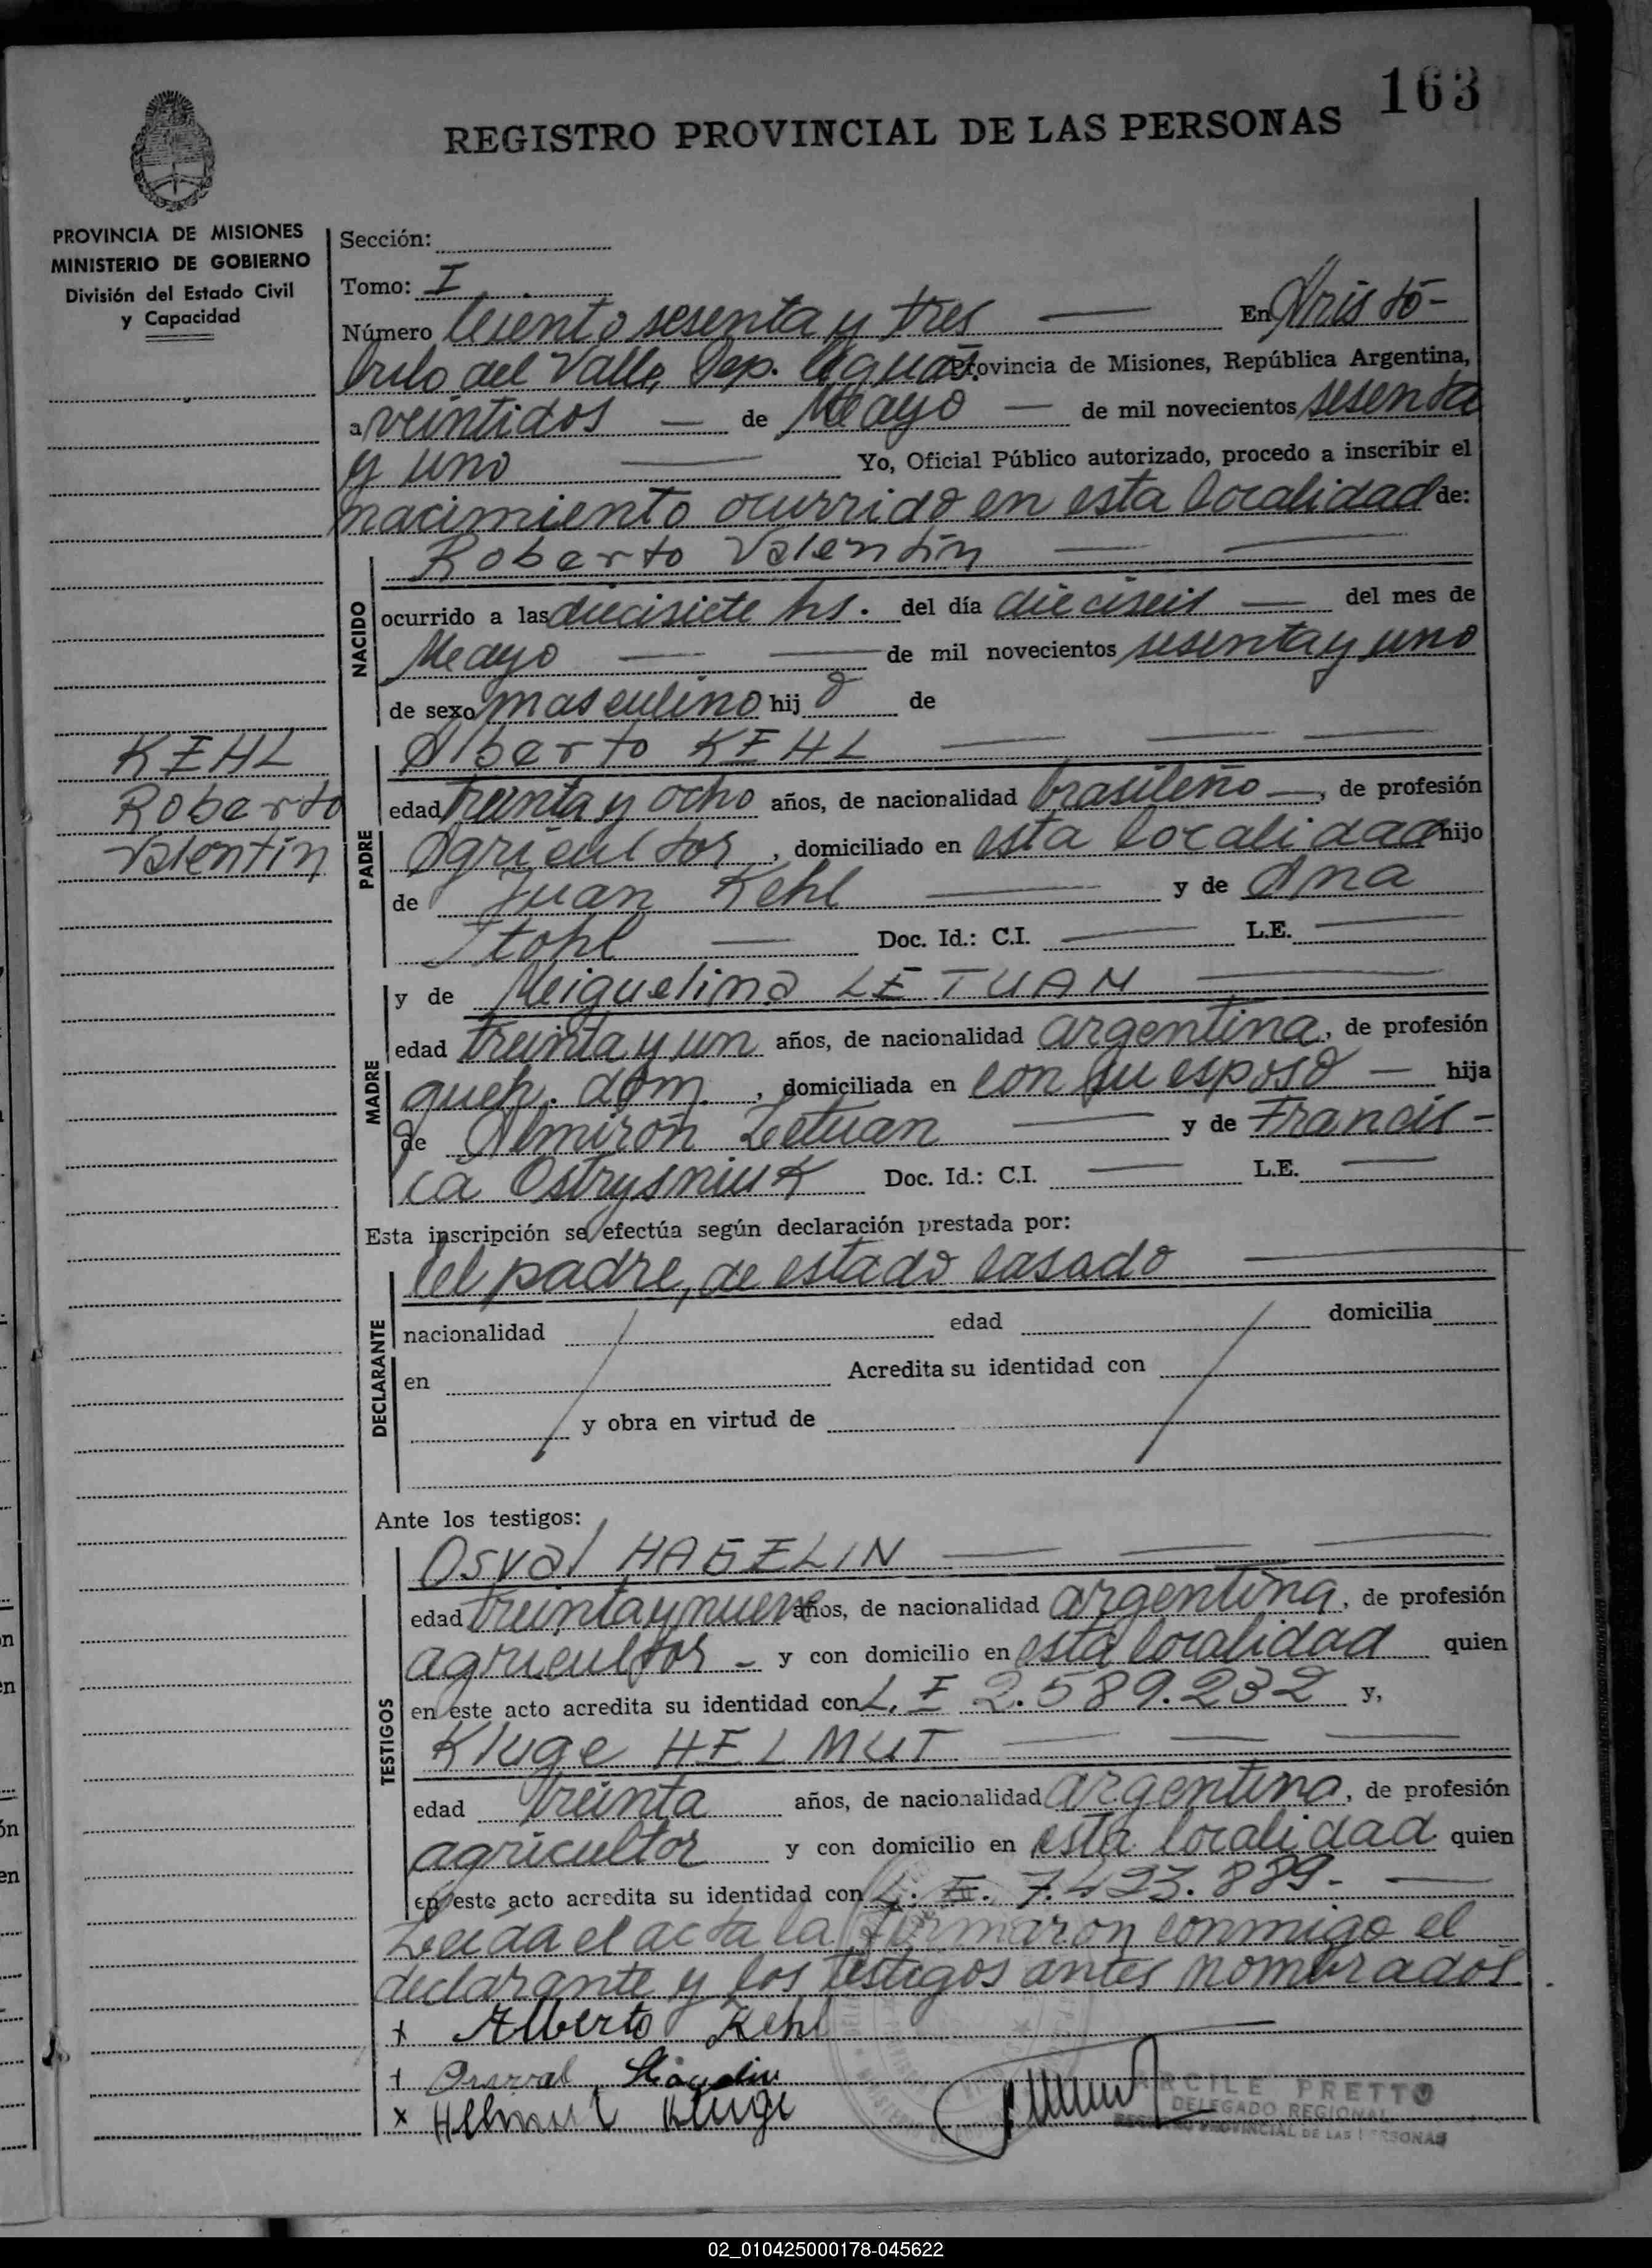 163
REGISTRO PROVINCIAL DE LAS PERSONAS
PROVINCIA DE MISIONES
MINISTERIO DE GOBIERNO
División del Estado Civil
y Capacidad
Sección:
Tomo: I
Número Ciento sesenta y tres En Aristó-
bulo del Valle, Dep. Caiguás. Provincia de Misiones, República Argentina,
a veintidos de Mayo de mil novecientos sesenta
y uno Yo, Oficial Público autorizado, procedo a inscribir el
nacimiento ocurrido en esta localidad de:
NACIDO
Roberto Valentín
ocurrido a las diecisiete hs. del día dieciseis del mes de
Mayo de mil novecientos sesenta y uno
de sexo masculino hijo de
KEHL
Roberto
Valentín
PADRE
Alberto KEHL
edad treinta y ocho años, de nacionalidad brasileño, de profesión
agricultor, domiciliado en esta localidad hijo
de Juan Kehl y de Ana
Stohl Doc. Id.: C.I. L.E.
MADRE
y de Miguelina LETUAN
edad treinta y un años, de nacionalidad argentina, de profesión
queh. dom., domiciliada en con su esposo hija
de Almirón Letuan y de Francis-
ca Ostrysniuk Doc. Id.: C.I. L.E.
Esta inscripción se efectúa según declaración prestada por:
DECLARANTE
el padre, de estado casado
nacionalidad edad domicilia
en Acredita su identidad con
y obra en virtud de
Ante los testigos:
TESTIGOS
Osval HAGELIN
edad treinta y nueve años, de nacionalidad argentina, de profesión
agricultor y con domicilio en esta localidad quien
en este acto acredita su identidad con L. E 2.589.232 y,
Kluge HELMUT
edad treinta años, de nacionalidad argentina, de profesión
agricultor y con domicilio en esta localidad quien
en este acto acredita su identidad con L. E. 7.493.889.
Leída el acta la firmaron conmigo el
declarante y los testigos antes nombrados.
x Alberto Kehl
x Osval Hagelin
x Helmut Kluge
ARCILE PRETTO
DELEGADO REGIONAL
REGISTRO PROVINCIAL DE LAS PERSONAS
02_010425000178-045622